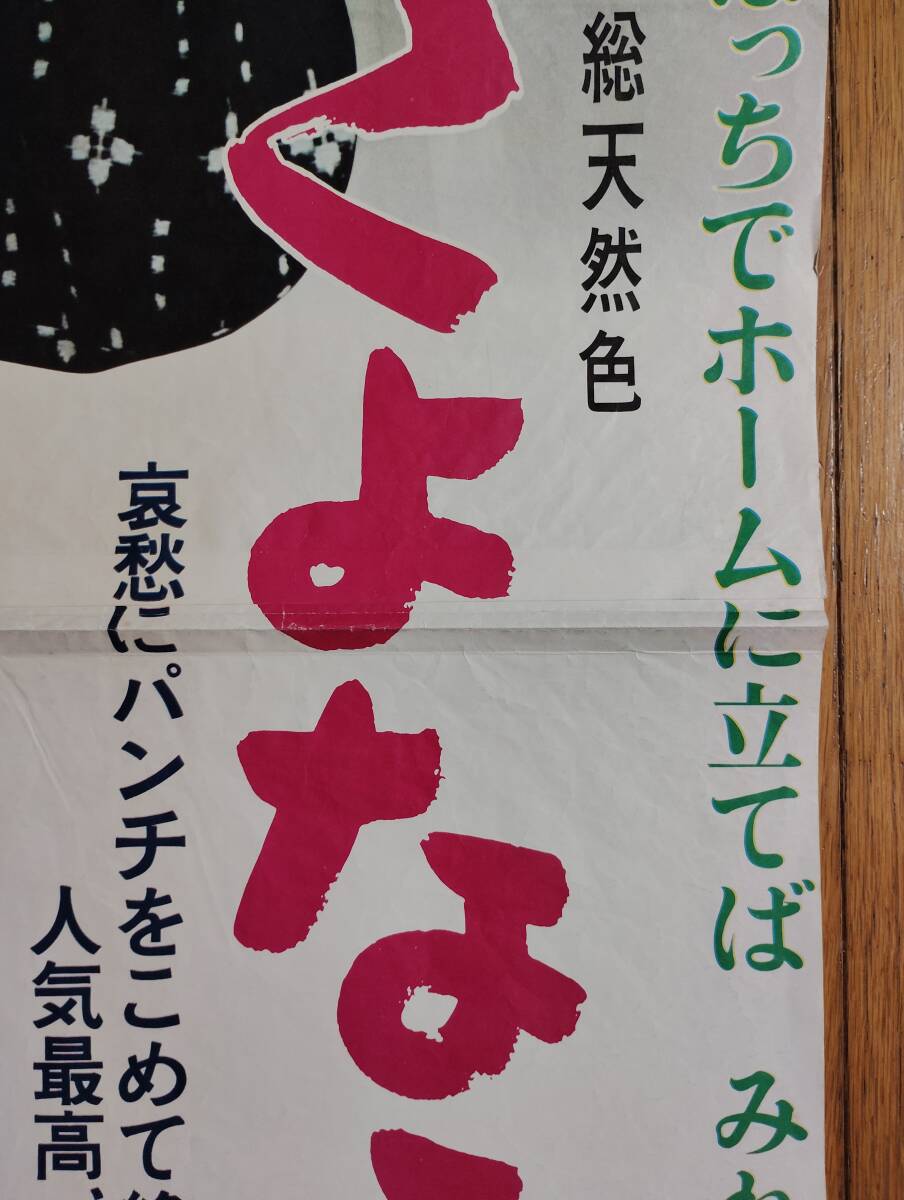 っちでホームに立てば み
総天然色
くよな
哀愁にパンチをこめて
人気最高、